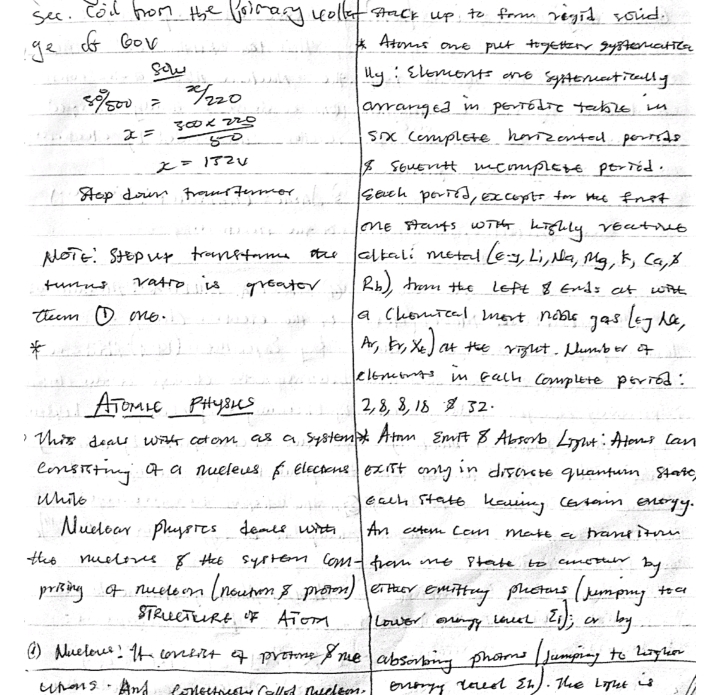 sec. Coil from the primary volta
ge of 60V
Soln
/500 = x/220
x = 300 x 220
50
x = 132V
Step down transformer
NOTE: Step up transforme the
turns ratio is greater
them ① one.
*
ATOMIC PHYSICS
This deals with atom as a system
consisting of a nucleus & electrons
while
Nuclear physics deals with
the nucleus & the system com-
prising of nucleon (neutron & proton)
STRUCTURE OF ATOM
Nucleus: It consist of protons & ne
utrons. And collectively called nucleon.
stack up to form rigid solid.
* Atoms are put together systematica
lly: Elements are systematically
arranged in periodic table in
six complete horizontal periods
& seventh incomplete period.
Each period, except for the first
one starts with highly reactive
alkali metal (e.g, Li, Na, Mg, K, Ca, &
Rb), from the left & ends at with
a chemical inert noble gas (eg Ne,
Ar, Kr, Xe) at the right. Number of
elements in each complete period:
2, 8, 8, 18 & 32.
* Atom Emit & Absorb Light: Atoms can
exist only in discrete quantum state,
each state having certain energy.
An atom can make a transition
from one state to another by
either emitting photons (jumping to a
lower energy level El); or by
absorbing photons (jumping to higher
energy level Eh). The light is